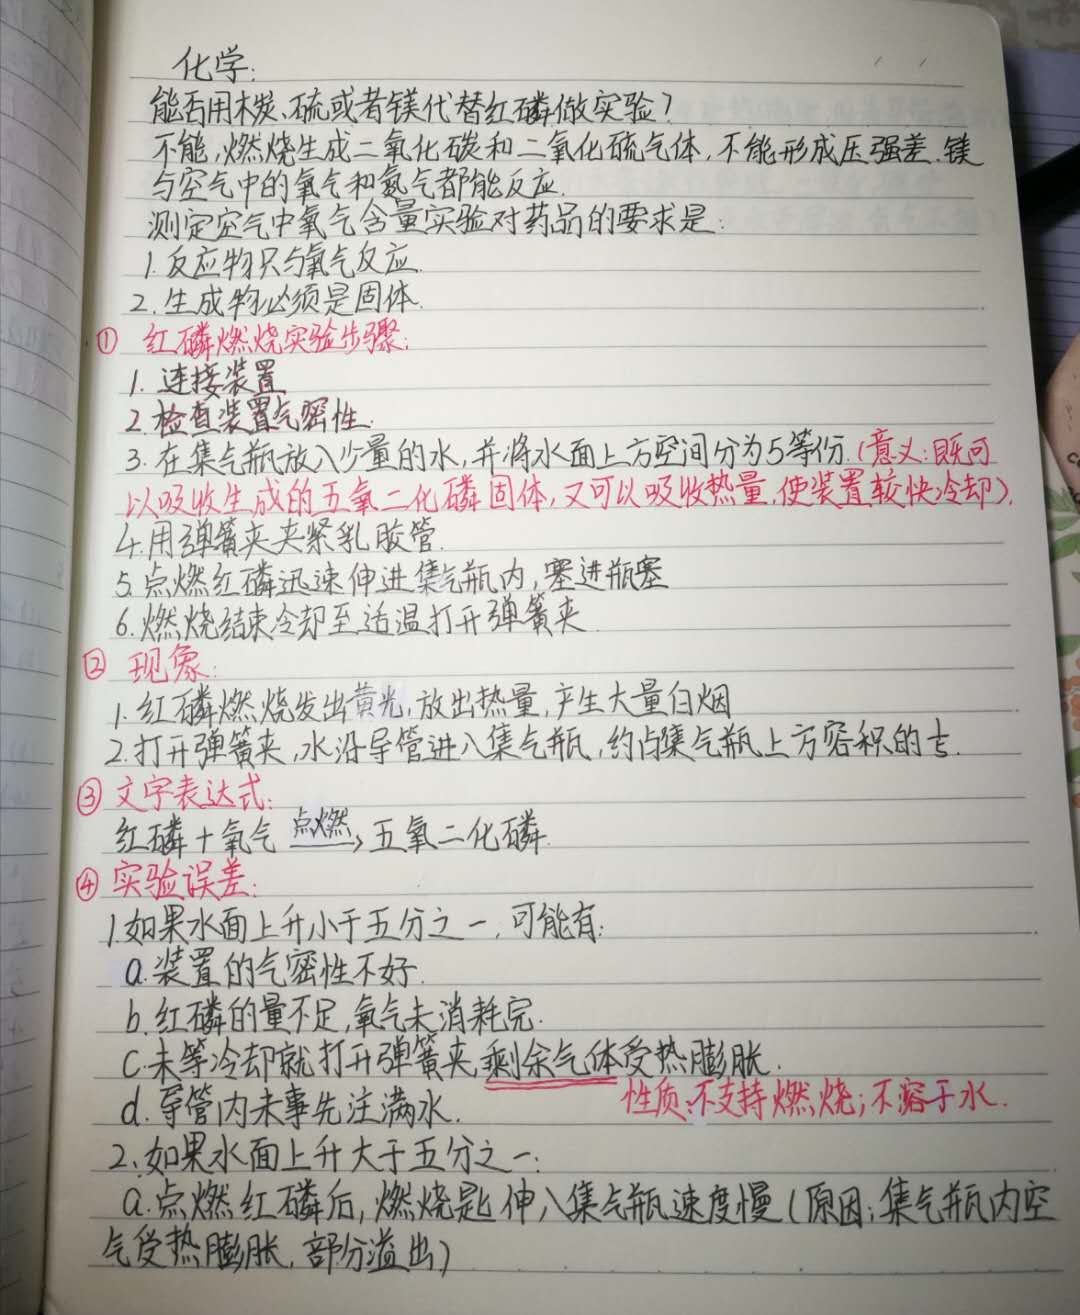 化学:
能否用木炭、硫或者镁代替红磷做实验?
不能,燃烧生成二氧化碳和二氧化硫气体,不能形成压强差.镁
与空气中的氧气和氮气都能反应.
测定空气中氧气含量实验对药品的要求是:
1.反应物只与氧气反应.
2.生成物必须是固体.
① 红磷燃烧实验步骤:
1.连接装置
2.检查装置气密性.
3.在集气瓶放入少量的水,并将水面上方空间分为5等份.(意义:既可
以吸收生成的五氧二化磷固体,又可以吸收热量,使装置较快冷却).
4.用弹簧夹夹紧乳胶管.
5.点燃红磷迅速伸进集气瓶内,塞进瓶塞
6.燃烧结束冷却至适温打开弹簧夹
② 现象:
1.红磷燃烧发出黄光,放出热量,产生大量白烟
2.打开弹簧夹,水沿导管进入集气瓶,约占集气瓶上方容积的1/5.
③ 文字表达式:
红磷+氧气 点燃→ 五氧二化磷.
④ 实验误差:
1.如果水面上升小于五分之一,可能有:
a.装置的气密性不好.
b.红磷的量不足,氧气未消耗完.
c.未等冷却就打开弹簧夹,剩余气体受热膨胀.
性质:不支持燃烧;不溶于水.
d.导管内未事先注满水.
2、如果水面上升大于五分之一:
a.点燃红磷后,燃烧匙伸入集气瓶速度慢(原因:集气瓶内空
气受热膨胀,部分溢出)